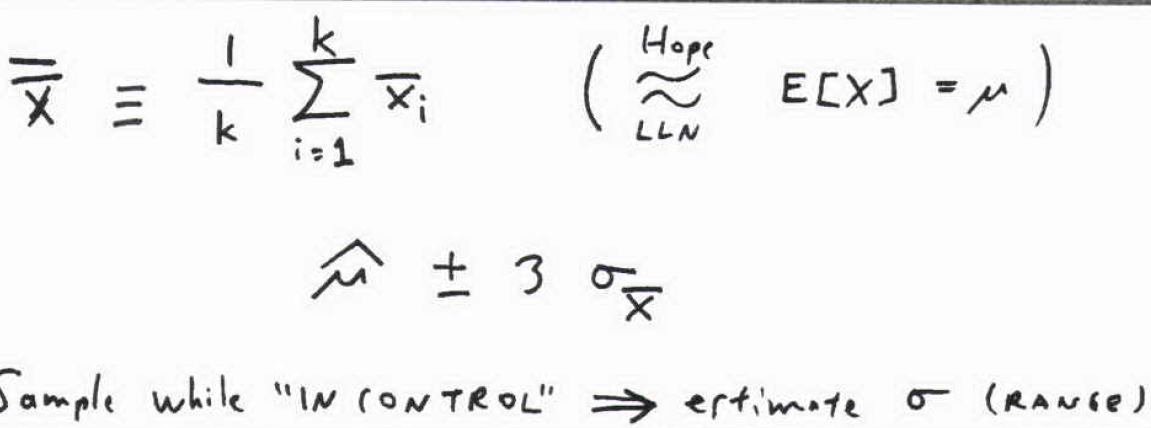 x̿ ≡ 1/k ∑_{i=1}^{k} x̄ᵢ ( Hope ≈ LLN E[X] = μ )
μ̂ ± 3 σ_x̄
Sample while "IN CONTROL" ⇒ estimate σ (RANGE)